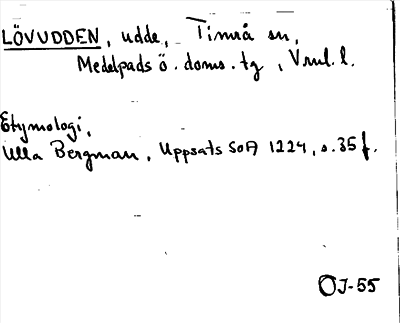 LÖVUDDEN, udde, Timrå sn,
Medelpads ö. doms. tg, Vnl. l.
Etymologi,
Ulla Bergman, Uppsats SoA 1224, s. 35 f.
OJ-55